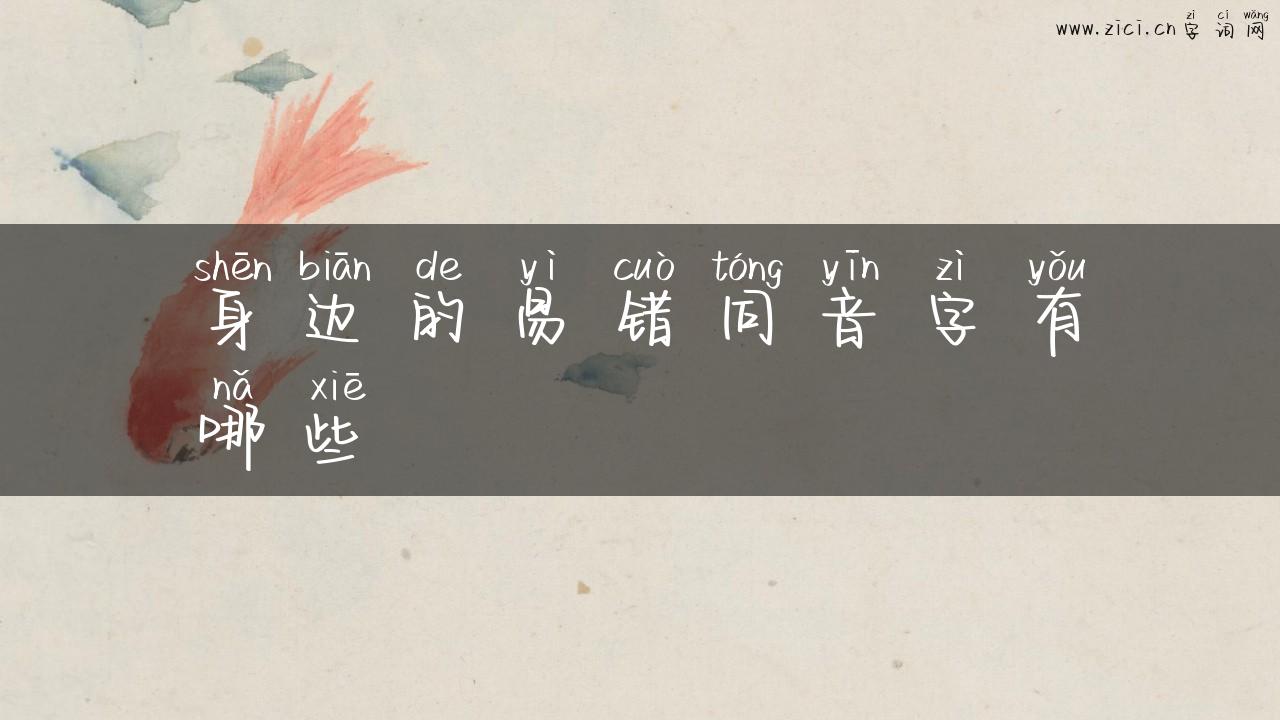 zì cí wǎng
www.zici.cn 字词网
shēn biān de yì cuò tóng yīn zì yǒu
身边的易错同音字有
nǎ xiē
哪些